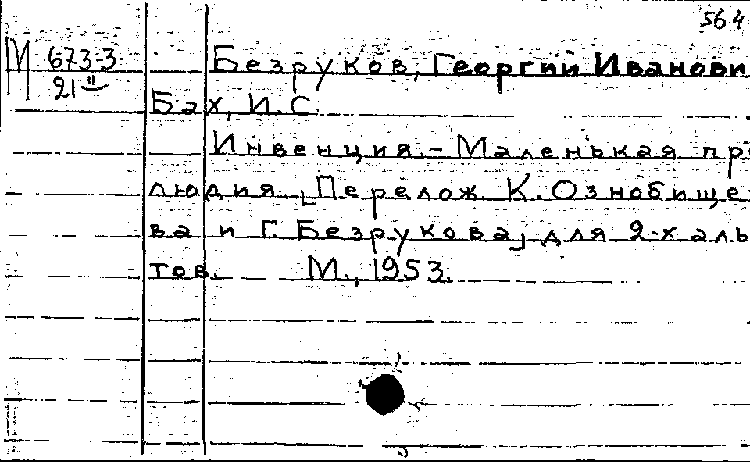 564
М 673-3
21
Безруков, Георгий Иванови
Бах, И.С.
Инвенция. - Маленькая пр
людия. [Перелож. К. Ознобище
ва и Г. Безрукова] для 2-х аль
тов. М., 1953.